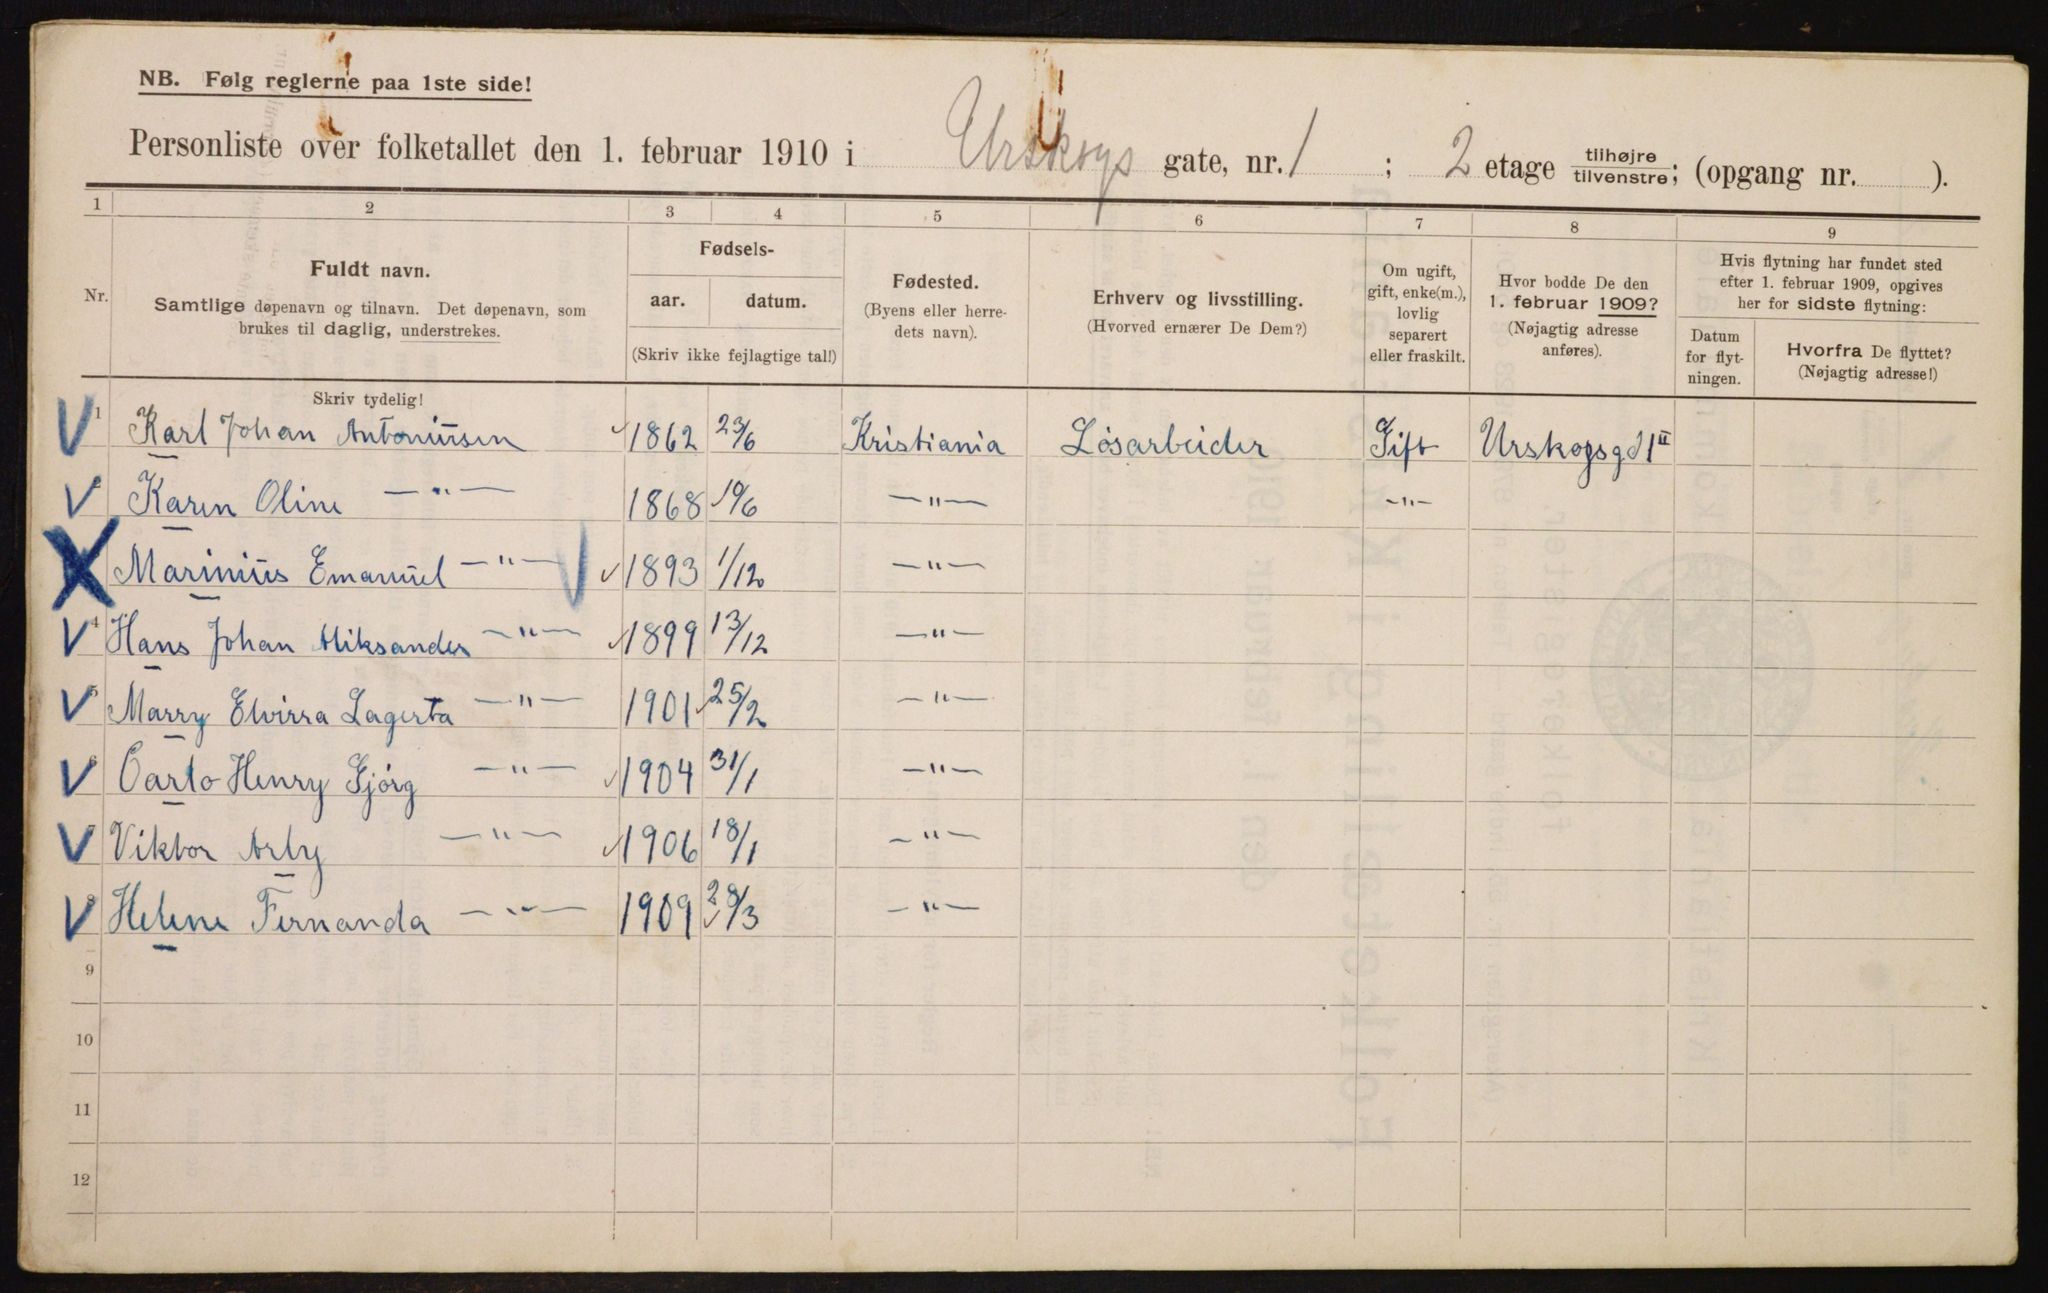 NB. Følg reglerne paa 1ste side!
Personliste over folketallet den 1. februar 1910 i Urskogs gate, nr. 1 ; 2 etage tilhøjre/tilvenstre; (opgang nr. ).
1 2 3 4 5 6 7 8 9
Nr.
Fuldt navn.
Samtlige døpenavn og tilnavn. Det døpenavn, som
brukes til daglig, understrekes.
Fødsels-
aar. datum.
(Skriv ikke fejlagtige tal!)
Fødested.
(Byens eller herre-
dets navn).
Erhverv og livsstilling.
(Hvorved ernærer De Dem?)
Om ugift,
gift, enke(m.),
lovlig
separert
eller fraskilt.
Hvor bodde De den
1. februar 1909?
(Nøjagtig adresse
anføres).
Hvis flytning har fundet sted
efter 1. februar 1909, opgives
her for sidste flytning:
Datum
for flyt-
ningen.
Hvorfra De flyttet?
(Nøjagtig adresse!)
Skriv tydelig!
1 Karl Johan Antoniusen 1862 23/6 Kristiania Løsarbeider Gift Urskogsgd 1 II
2 Karen Oline —"— 1868 10/6 —"— —"—
Marinius Emanuel —"— 1893 1/12 —"—
4 Hans Johan Aliksander —"— 1899 13/12 —"—
5 Marry Elvirra Lagerta —"— 1901 25/2 —"—
6 Carlo Henry Gjörg —"— 1904 31/1 —"—
7 Viktor Arby —"— 1906 18/1 —"—
8 Helene Fernanda —"— 1909 28/3 —"—
9
10
11
12